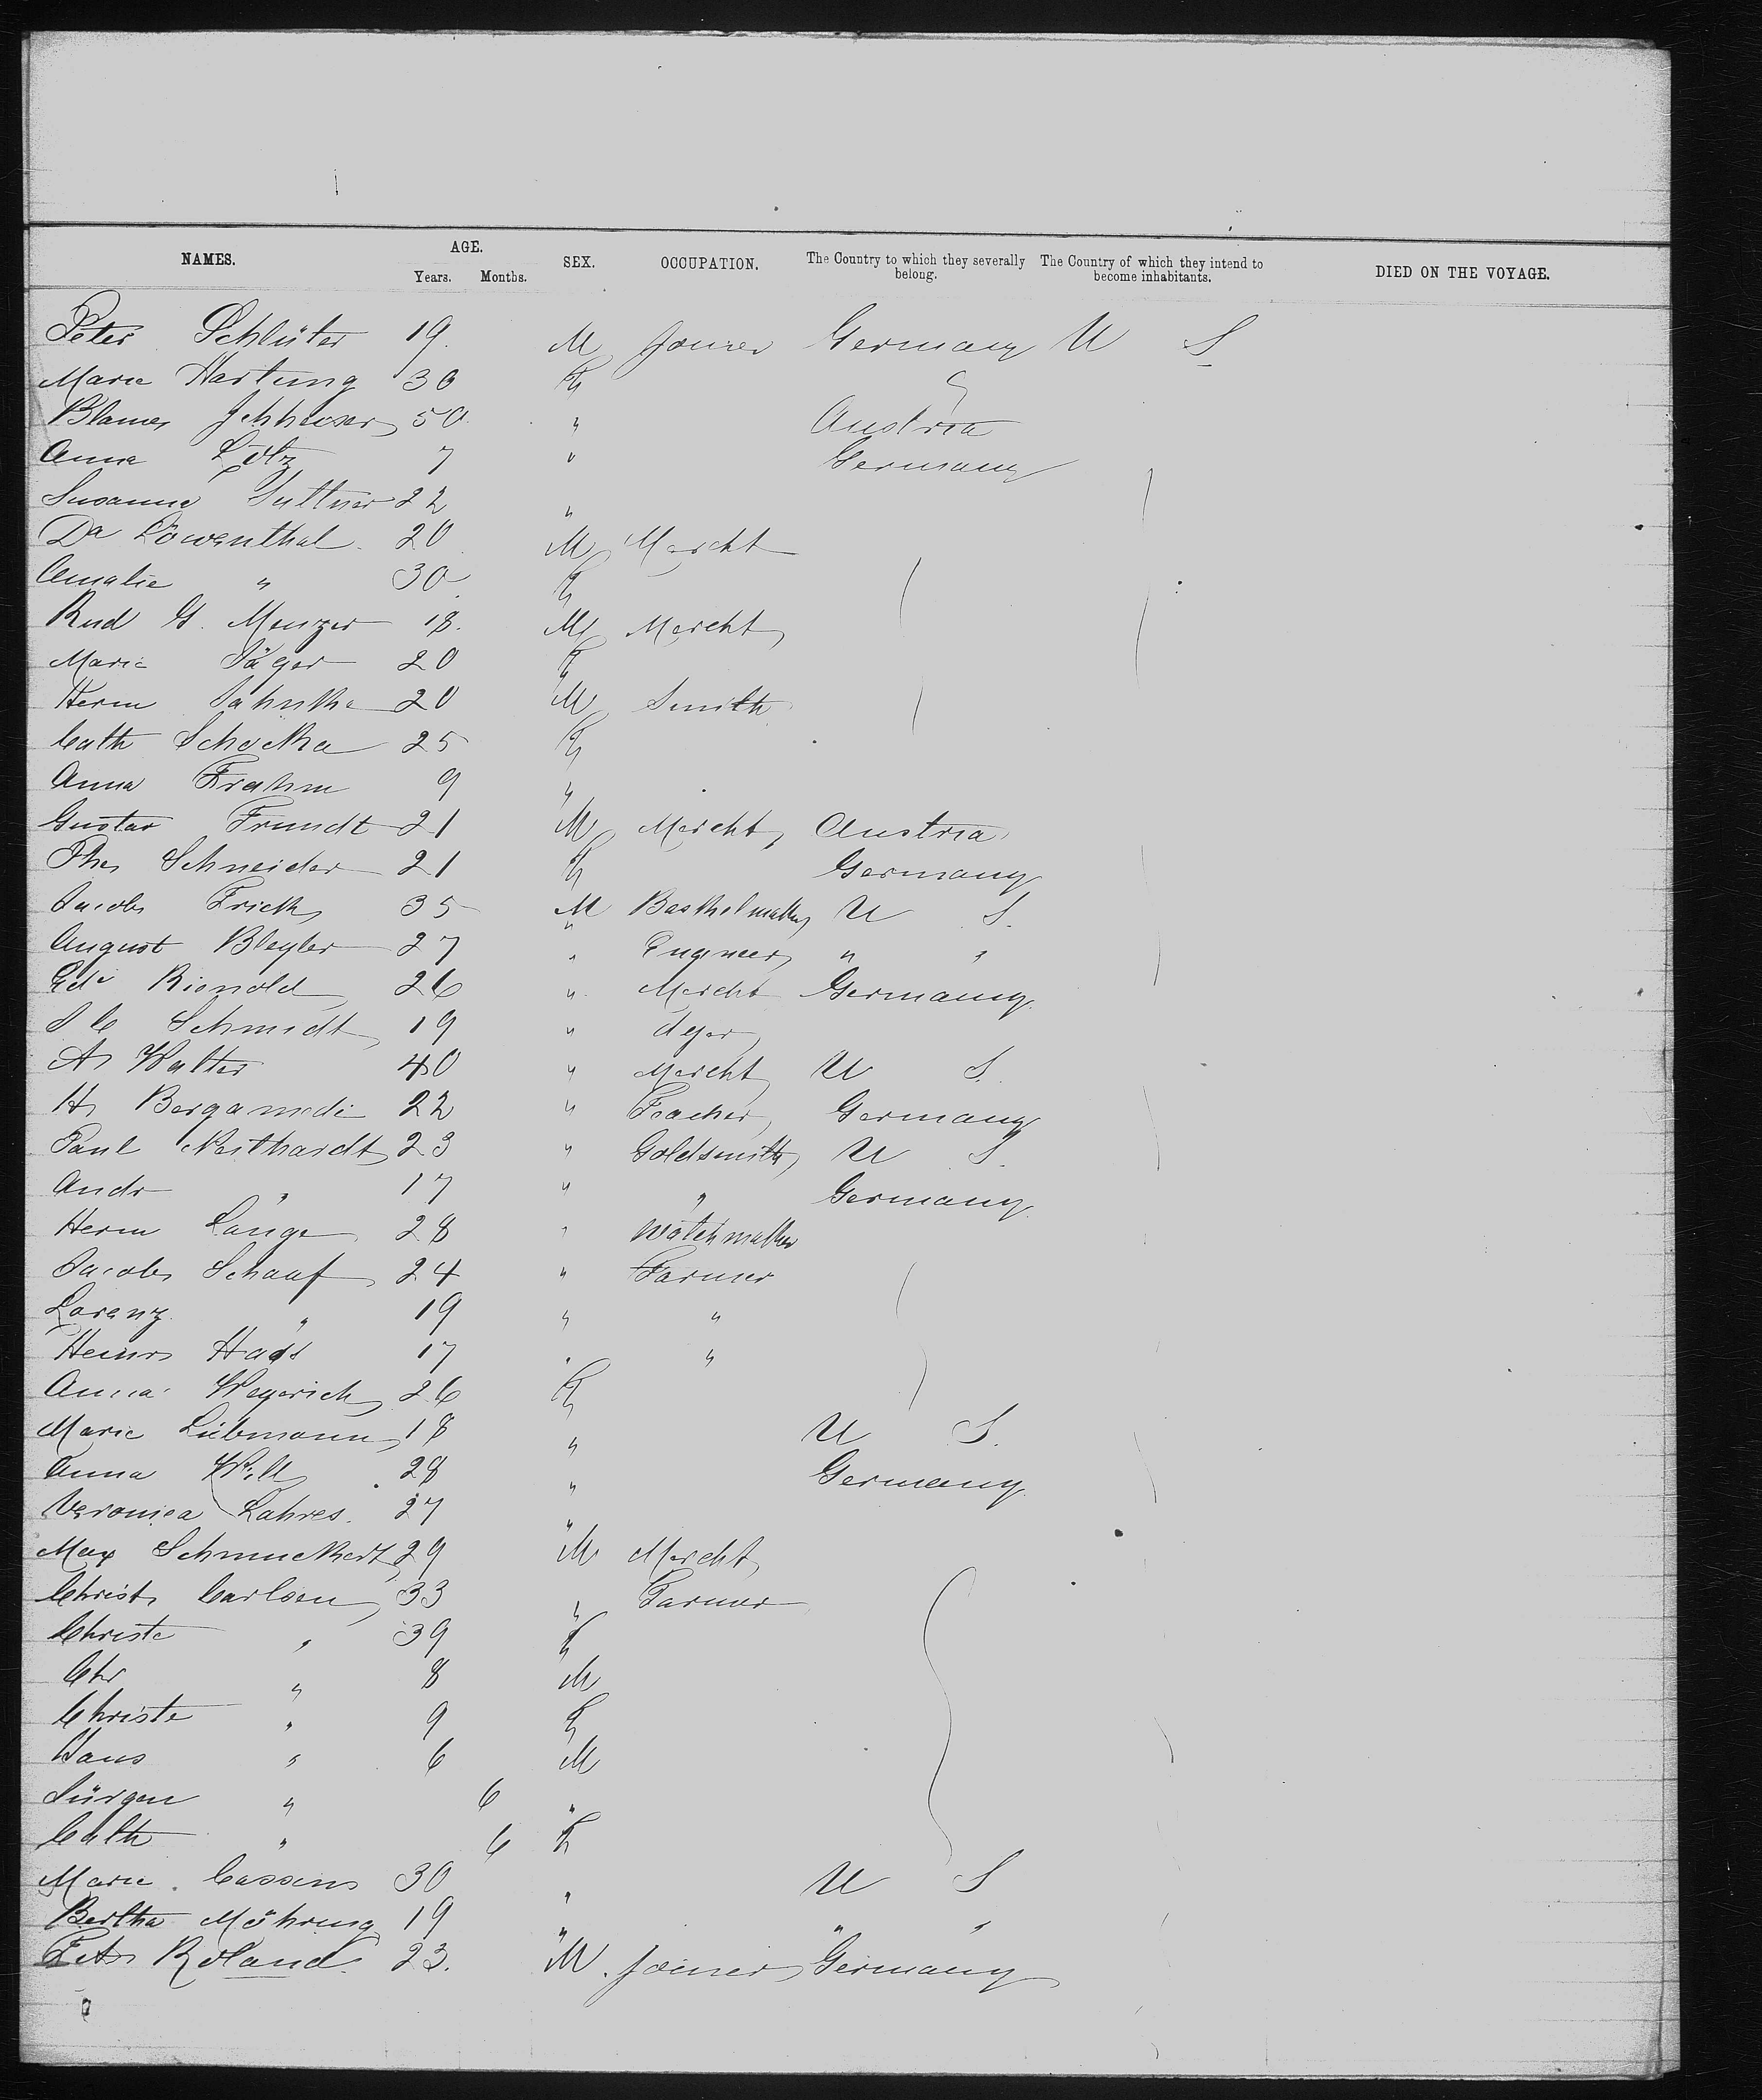 NAMES. AGE. SEX. OCCUPATION. The Country to which they severally belong. The Country of which they intend to become inhabitants. DIED ON THE VOYAGE.
Years. Months.
Peter Schlüter 19. M Joiner Germany U S
Marie Hartung 30 F
50 " Austria
Anna Lotz 7 " Germany
Susanne 22 "
Da Löwenthal 20 M Mercht
Amalie " 30 F
Rud G. Menzer 18. M Mercht
Marie Jäger 20 F
Herm Jahnke 20 M Smith
Cath Schocka 25 F
Anna Frahm 9 "
Gustav Frundt 21 M Mercht Austria
Ths Schneider 21 F Germany
Jacob Frick 35 M U S.
August Bleyler 27 " Engineer " "
Edu Rienold 26 " Mercht Germany
J C Schmidt 19 " dyer
A Walter 40 " Mercht U S.
H Bergamedi 22 " Teacher Germany
Paul Neithardt 23 " Goldsmith U S.
Andr " 17 " " Germany
Herm Lange 28 " Watchmaker
Jacob Schaaf 24 " Farmer
Lorenz " 19 " "
Heinr Haas 17 " "
Anna Weyerich 26 F
Marie Liebmann 18 " U S.
Anna Will 28 " Germany
Veronica Lahres. 27 "
Max Schmuckert 29 M Mercht
Christ Carlsen 33 " Farmer
Christe " 39 F
Chr " 8 M
Christe " 9 F
Hans " 6 M
Jürgen " 6 "
Cath " 6 F
Marie Cassens 30 " U S
Bertha Möhring 19 " " "
Roland 23. M. Joiner Germany